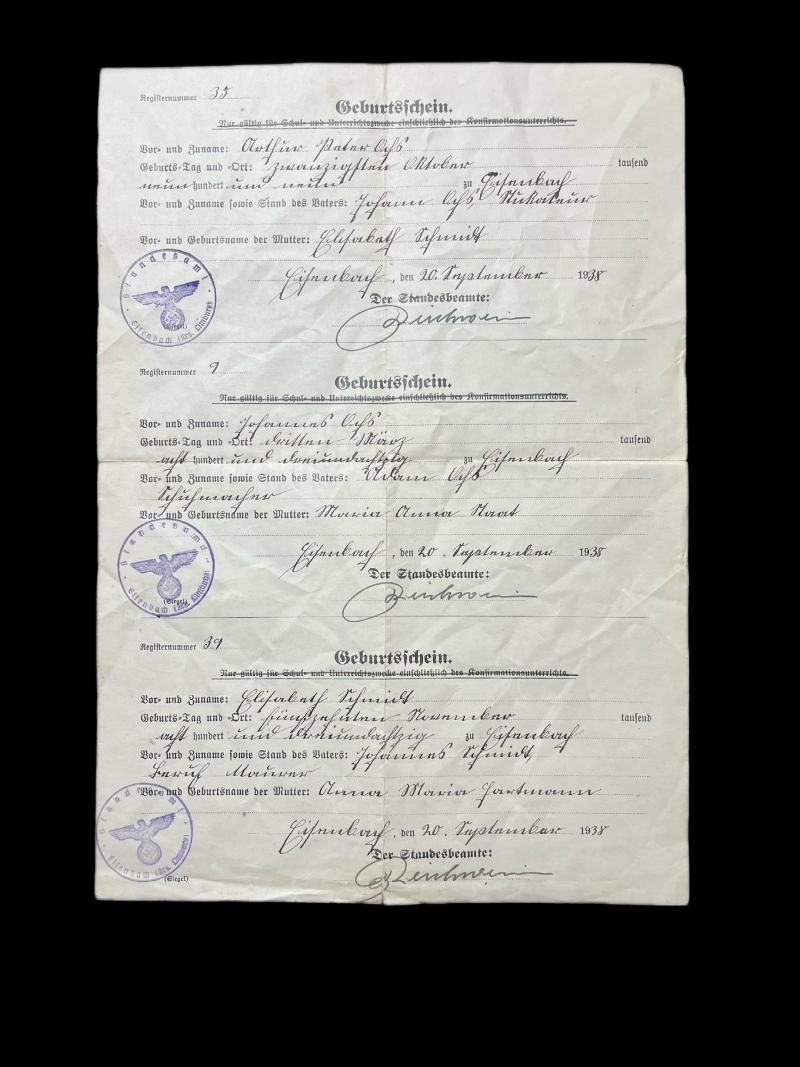 Registernummer 35
Geburtsschein.
Nur gültig für Schul- und Unterrichtszwecke einschließlich des Konfirmationsunterrichts.
Vor- und Zuname: Arthur Peter Ochs
Geburts-Tag und -Ort: zwanzigsten Oktober tausend
neun hundert und neun zu Eisenbach
Vor- und Zuname sowie Stand des Vaters: Johann Ochs, Stukateur
Vor- und Geburtsname der Mutter: Elisabeth Schmidt
Eisenbach, den 20. September 1938
Der Standesbeamte:
Standesamt
Eisenbach (Krs. Limburg)
(Siegel)
Reichwein
Registernummer 9
Geburtsschein.
Nur gültig für Schul- und Unterrichtszwecke einschließlich des Konfirmationsunterrichts.
Vor- und Zuname: Johannes Ochs
Geburts-Tag und -Ort: dritten März tausend
acht hundert und dreiundachtzig zu Eisenbach
Vor- und Zuname sowie Stand des Vaters: Adam Ochs
Schuhmacher
Vor- und Geburtsname der Mutter: Maria Anna Staat
Eisenbach, den 20. September 1938
Der Standesbeamte:
Standesamt
Eisenbach (Krs. Limburg)
(Siegel)
Reichwein
Registernummer 39
Geburtsschein.
Nur gültig für Schul- und Unterrichtszwecke einschließlich des Konfirmationsunterrichts.
Vor- und Zuname: Elisabeth Schmidt
Geburts-Tag und -Ort: fünfzehnten November tausend
acht hundert und dreiundachtzig zu Eisenbach
Vor- und Zuname sowie Stand des Vaters: Johannes Schmidt,
Beruf Maurer
Vor- und Geburtsname der Mutter: Anna Maria Hartmann
Eisenbach, den 20. September 1938
Der Standesbeamte:
Standesamt
Eisenbach (Krs. Limburg)
(Siegel)
Reichwein